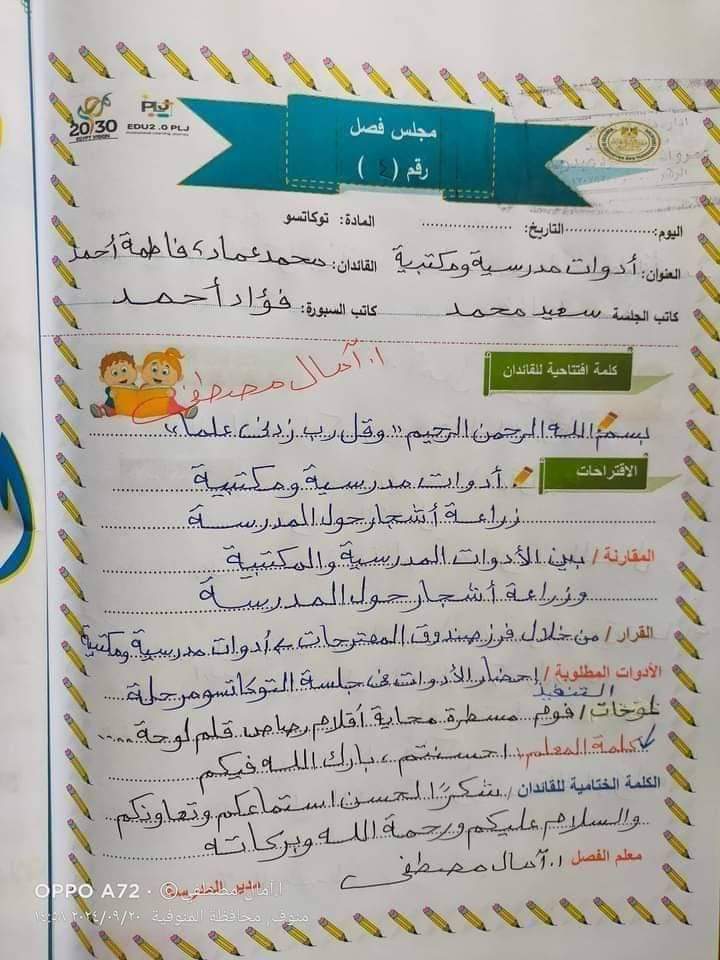 2030
EGYPT VISION
PLJ
EDU2.0 PLJ
مجلس فصل
رقم (٤)
اليوم:.................. التاريخ: .................. المادة: توكاتسو
العنوان: أدوات مدرسية ومكتبية القائدان: محمد عماد، فاطمة أحمد
كاتب الجلسة سعيد محمد كاتب السبورة: فؤاد أحمد
كلمة افتتاحية للقائدان
أ. آمال مصطفى
بسم الله الرحمن الرحيم "وقل رب زدنى علما"
الاقتراحات
أدوات مدرسية ومكتبية
زراعة أشجار حول المدرسة
المقارنة / بين الأدوات المدرسية والمكتبية
وزراعة أشجار حول المدرسة
القرار / من خلال فرز صندوق المقترحات ← أدوات مدرسية ومكتبية
الأدوات المطلوبة / إحضار الأدوات فى جلسة التوكاتسو مرحلة
التنفيذ
لوحات / فوم مسطرة محاية أقلام رصاص قلم لوحة ....
كلمة المعلم / احسنتم، بارك الله فيكم
الكلمة الختامية للقائدان / شكرًا لحسن استماعكم وتعاونكم
والسلام عليكم ورحمة الله وبركاته
معلم الفصل أ. آمال مصطفى
مدير المدرسة
OPPO A72 · © أ.أمال مصطفي
منوف, محافظة المنوفية ٢٠٢٤/٠٩/٢٠ ١٤:٥٦